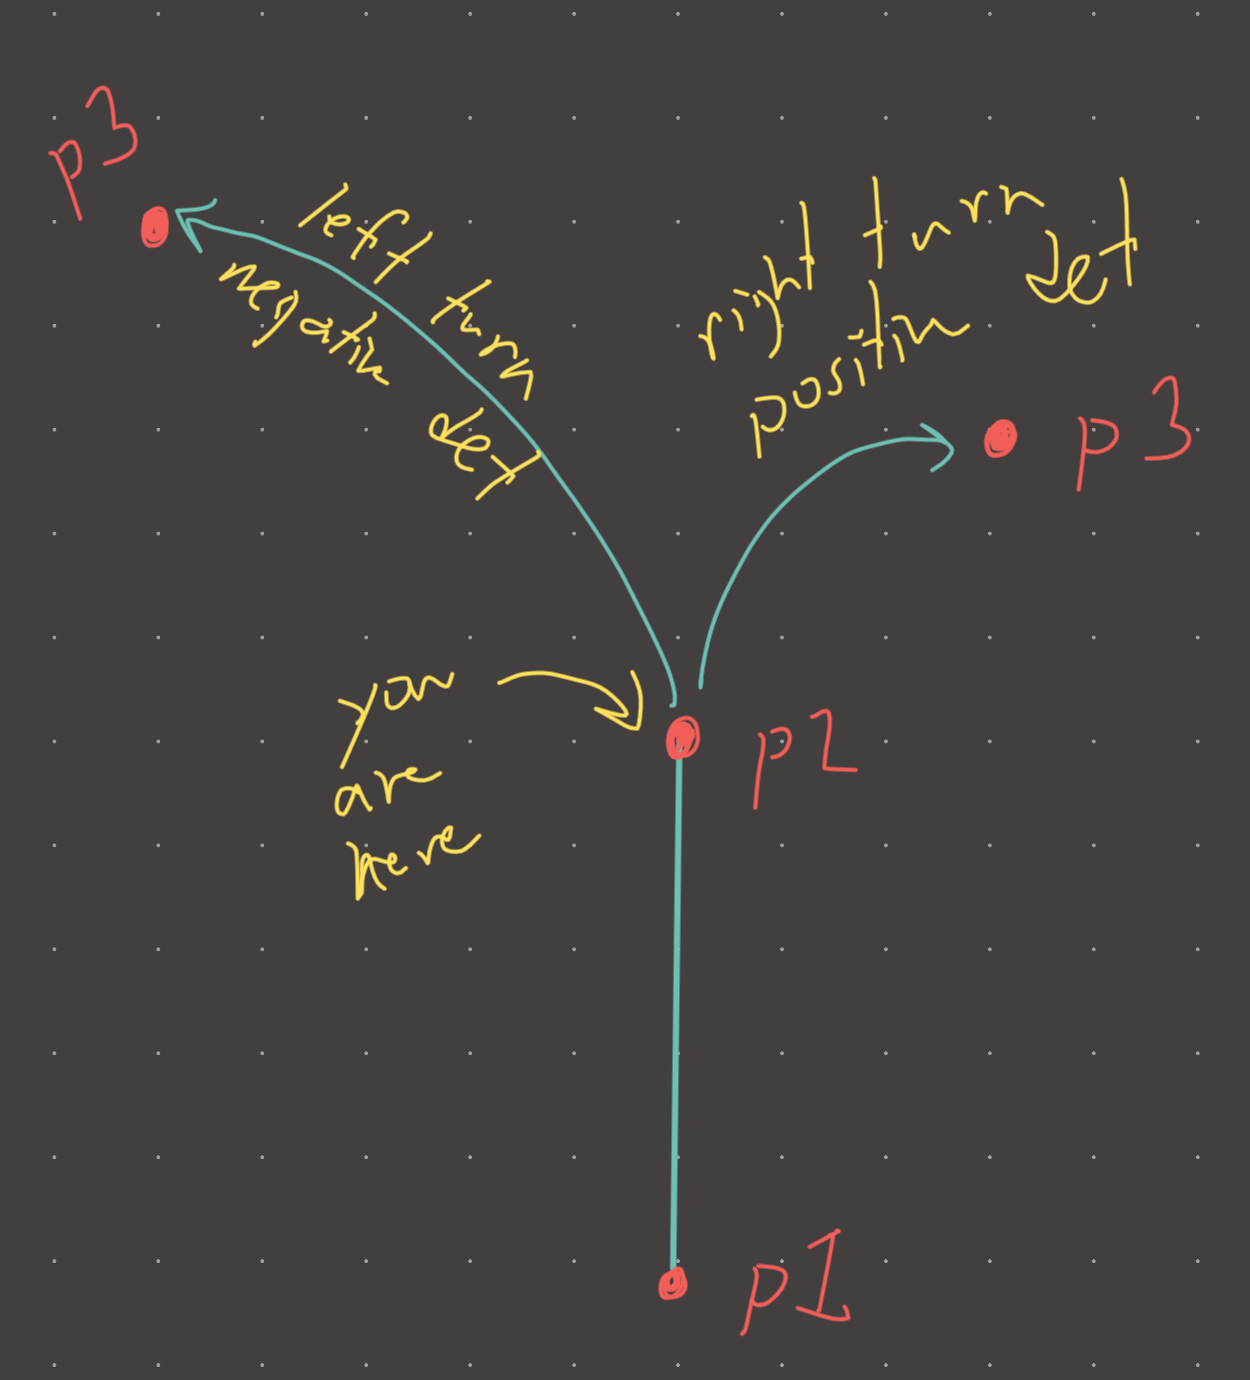 p3
left turn
negative det
right turn
positive det
p3
you
are
here
p2
p1